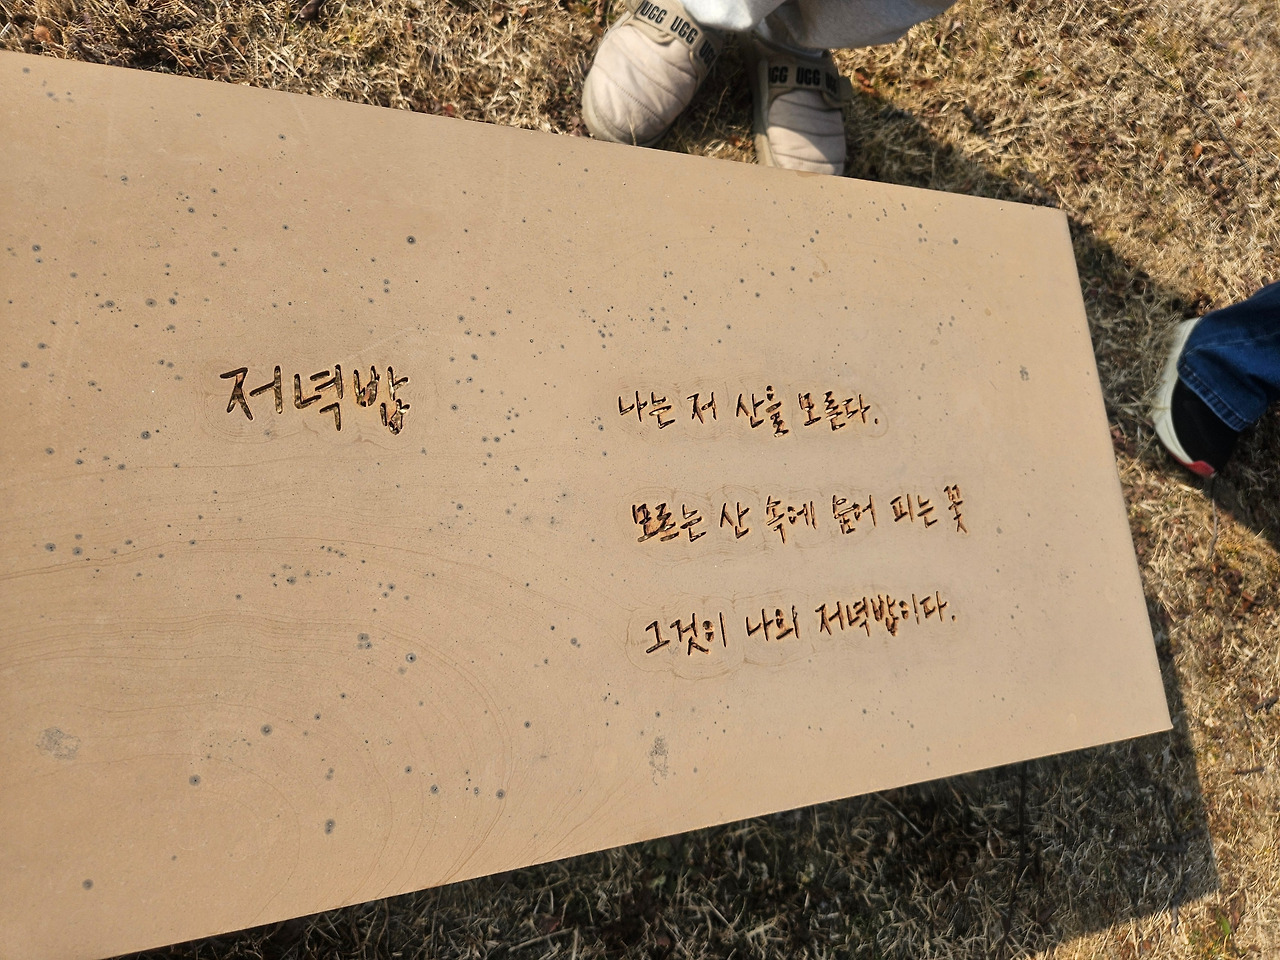 UGG UGG UGG
GG UGG UG
저녁밥
나는 저 산을 모른다.
모르는 산 속에 숨어 피는 꽃
그것이 나의 저녁밥이다.